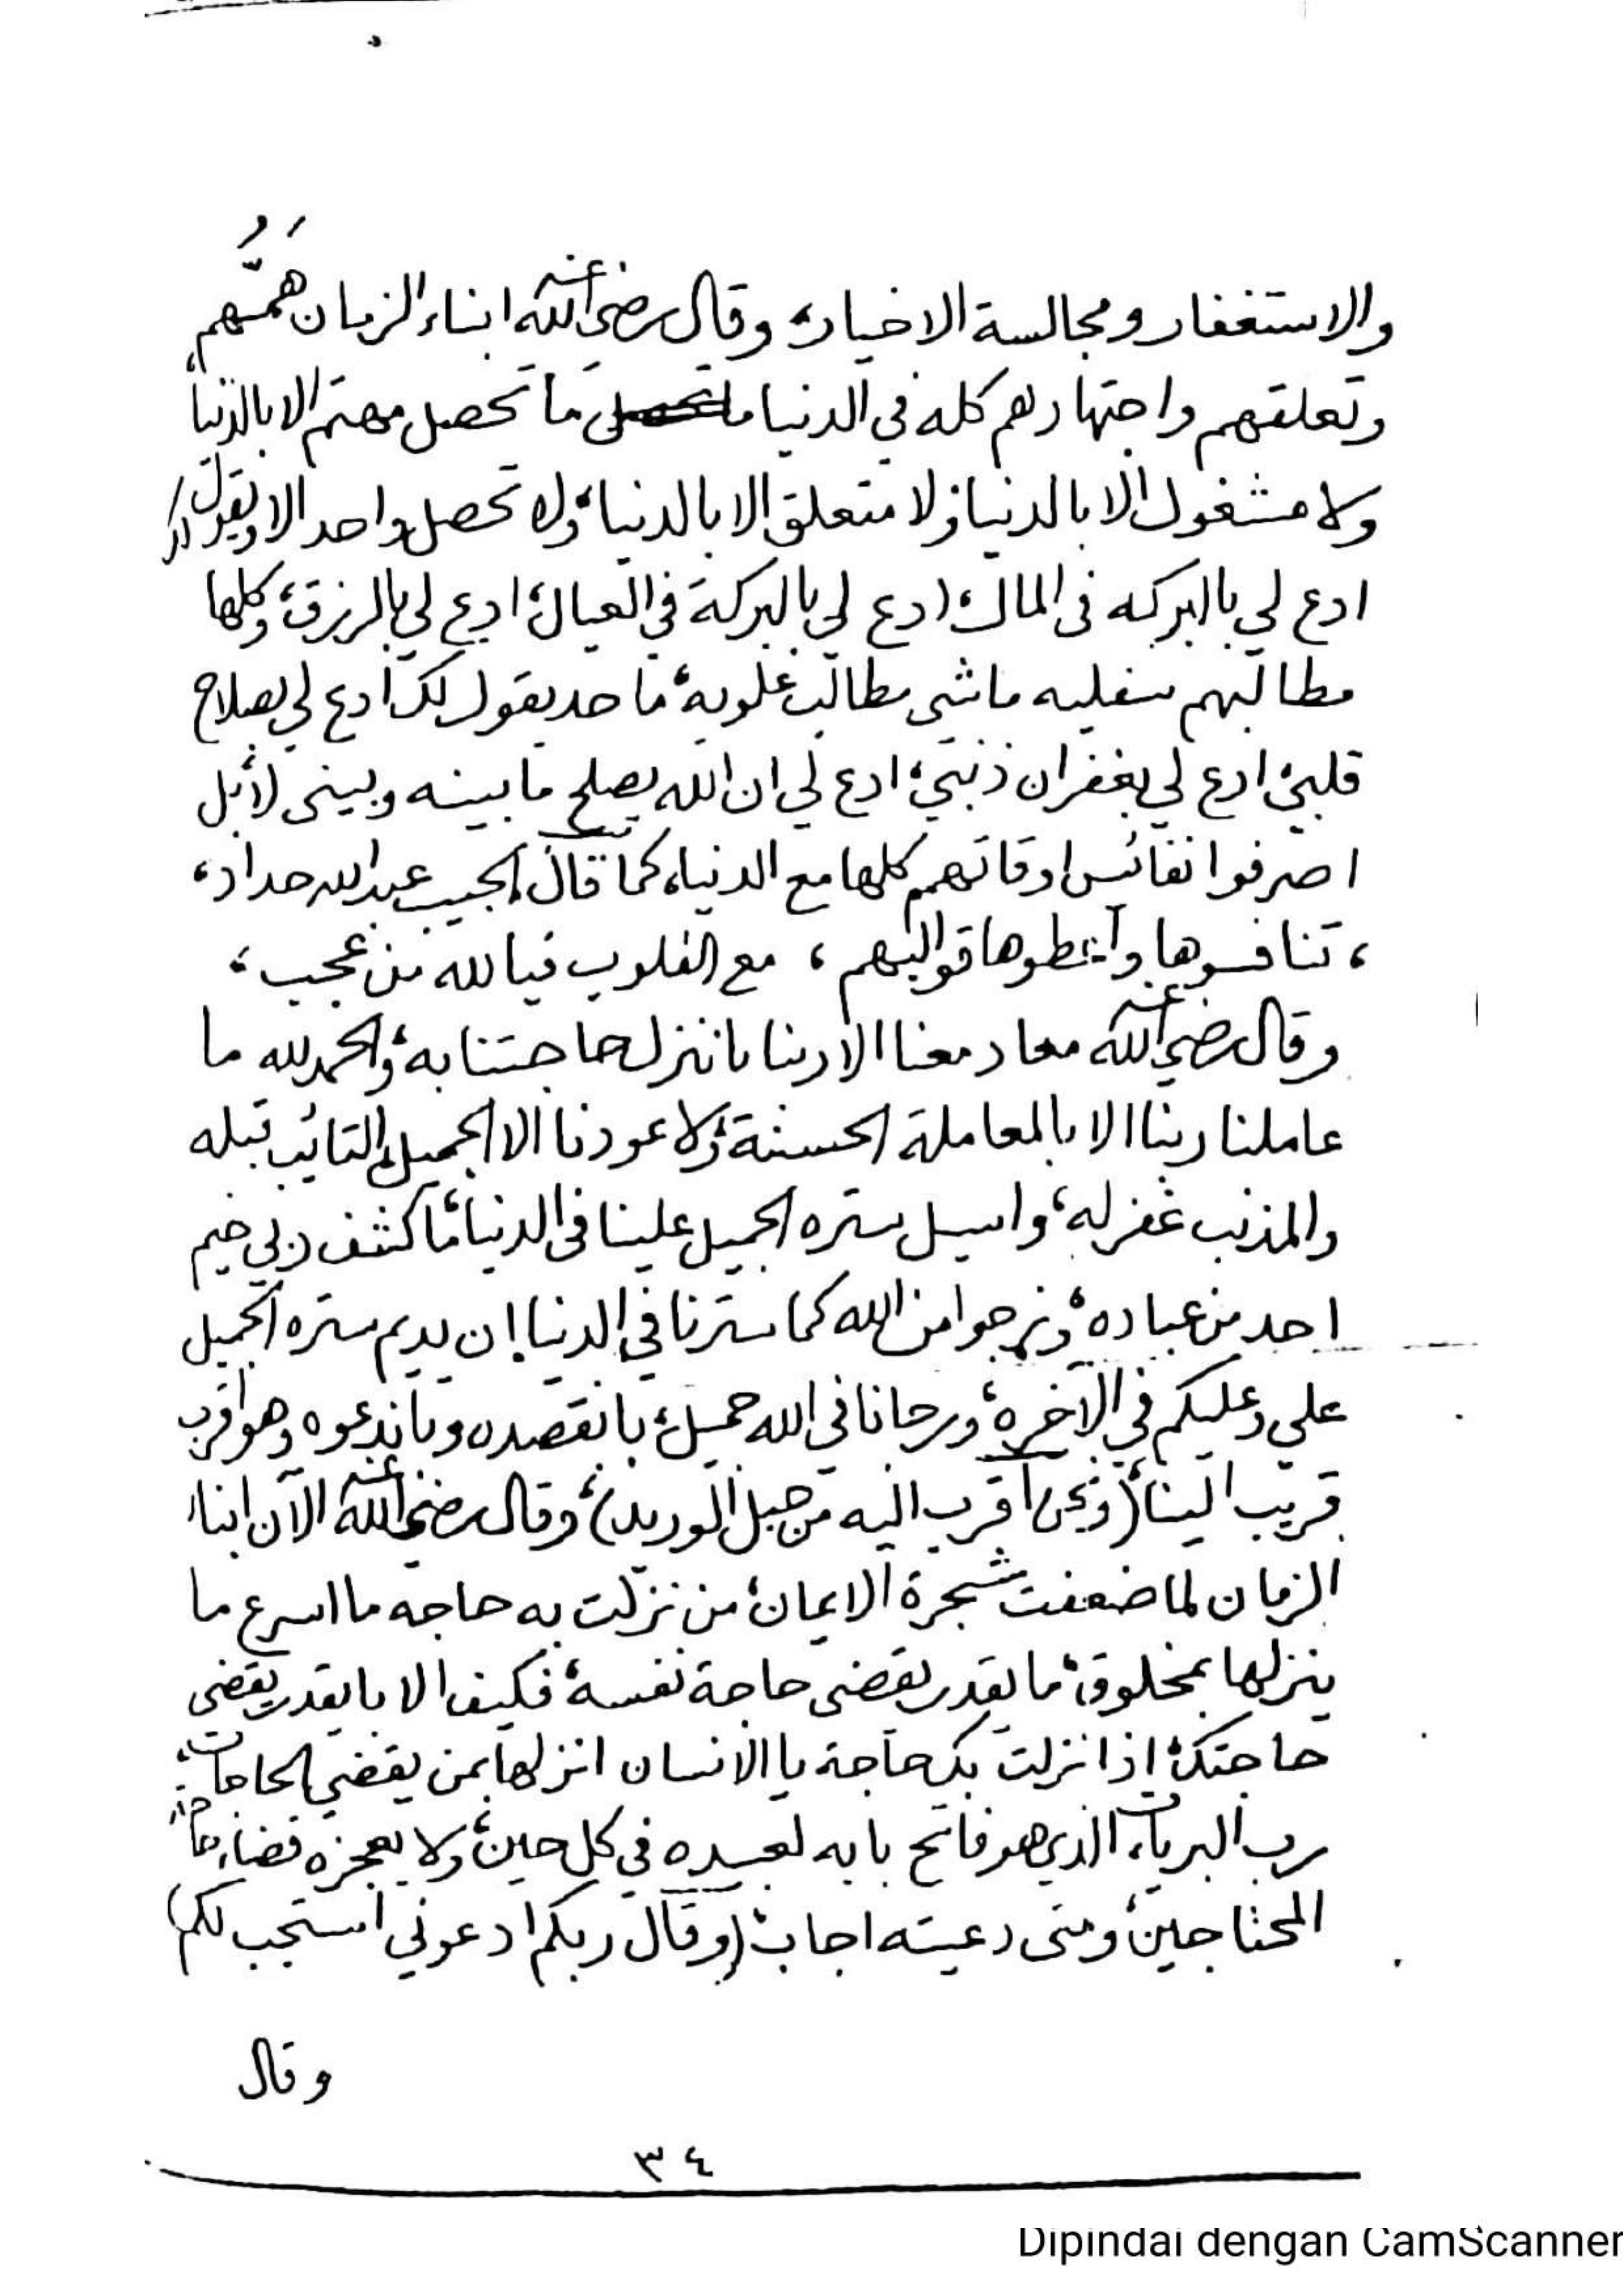 والاستغفار ومجالسة الاخيار، وقال رضي الله عنه ابناء الزمان هَمُّهم
وتعلقهم واجتهادهم كله في الدنيا ما تحصل مهتم الا بالدنيا،
ولا مشغول الا بالدنيا، ولا متعلق الا بالدنيا، ولا تحصل واحد الا ويقول
ادع لي بالبركه فى المال، ادع لي بالبركة في العيال، ادع لي بالرزق، وكلها
مطالبهم سفليه ماشي مطالب علويه، ما حد يقول لك ادع لي بصلاح
قلبي، ادع لي بغفران ذنبي، ادع لي ان الله يصلح ما بينه وبينى لا، بل
اصرفوا نفائس اوقاتهم كلها مع الدنيا، كما قال الحبيب عبدالله حداد،
، تنافسوها واعطوها قوالبهم ، مع القلوب فيا لله من عجب ،
وقال رضي الله عنه معاد معنا الا ربنا باننزل حاجتنا به، والحمدلله ما
عاملنا ربنا الا بالمعاملة الحسنة، ولا عودنا الا الجميل، التائب قبله
والمذنب غفر له، واسبل ستره الجميل علينا فى الدنيا، ما كشف بي خيم
احد من عباده، ونرجوا من الله كما سترنا في الدنيا ان يديم ستره الجميل
علي وعليكم في الآخره، ورجانا في الله جميل، بانقصده وباندعوه وهو اقرب
قريب الينا، (ونحن اقرب اليه من حبل الوريد)، وقال رضي الله عنه الآن ابناء
الزمان لما ضعفت شجرة الايمان، من نزلت به حاجه ما اسرع ما
ينزلها بمخلوق، ما يقدر يقضى حاجة نفسه، فكيف الا بايقدر يقضى
حاجتك، اذا نزلت بك حاجة يا الانسان انزلها بمن يقضي الحاجات،
رب البريات، الذي هو فاتح بابه لعبيده في كل حين، ولا يعجزه قضاء حاجات
المحتاجين، ومتى دعيته اجاب، (وقال ربكم ادعوني استجب لكم)
وقال
٣٤
Dipindai dengan CamScanner